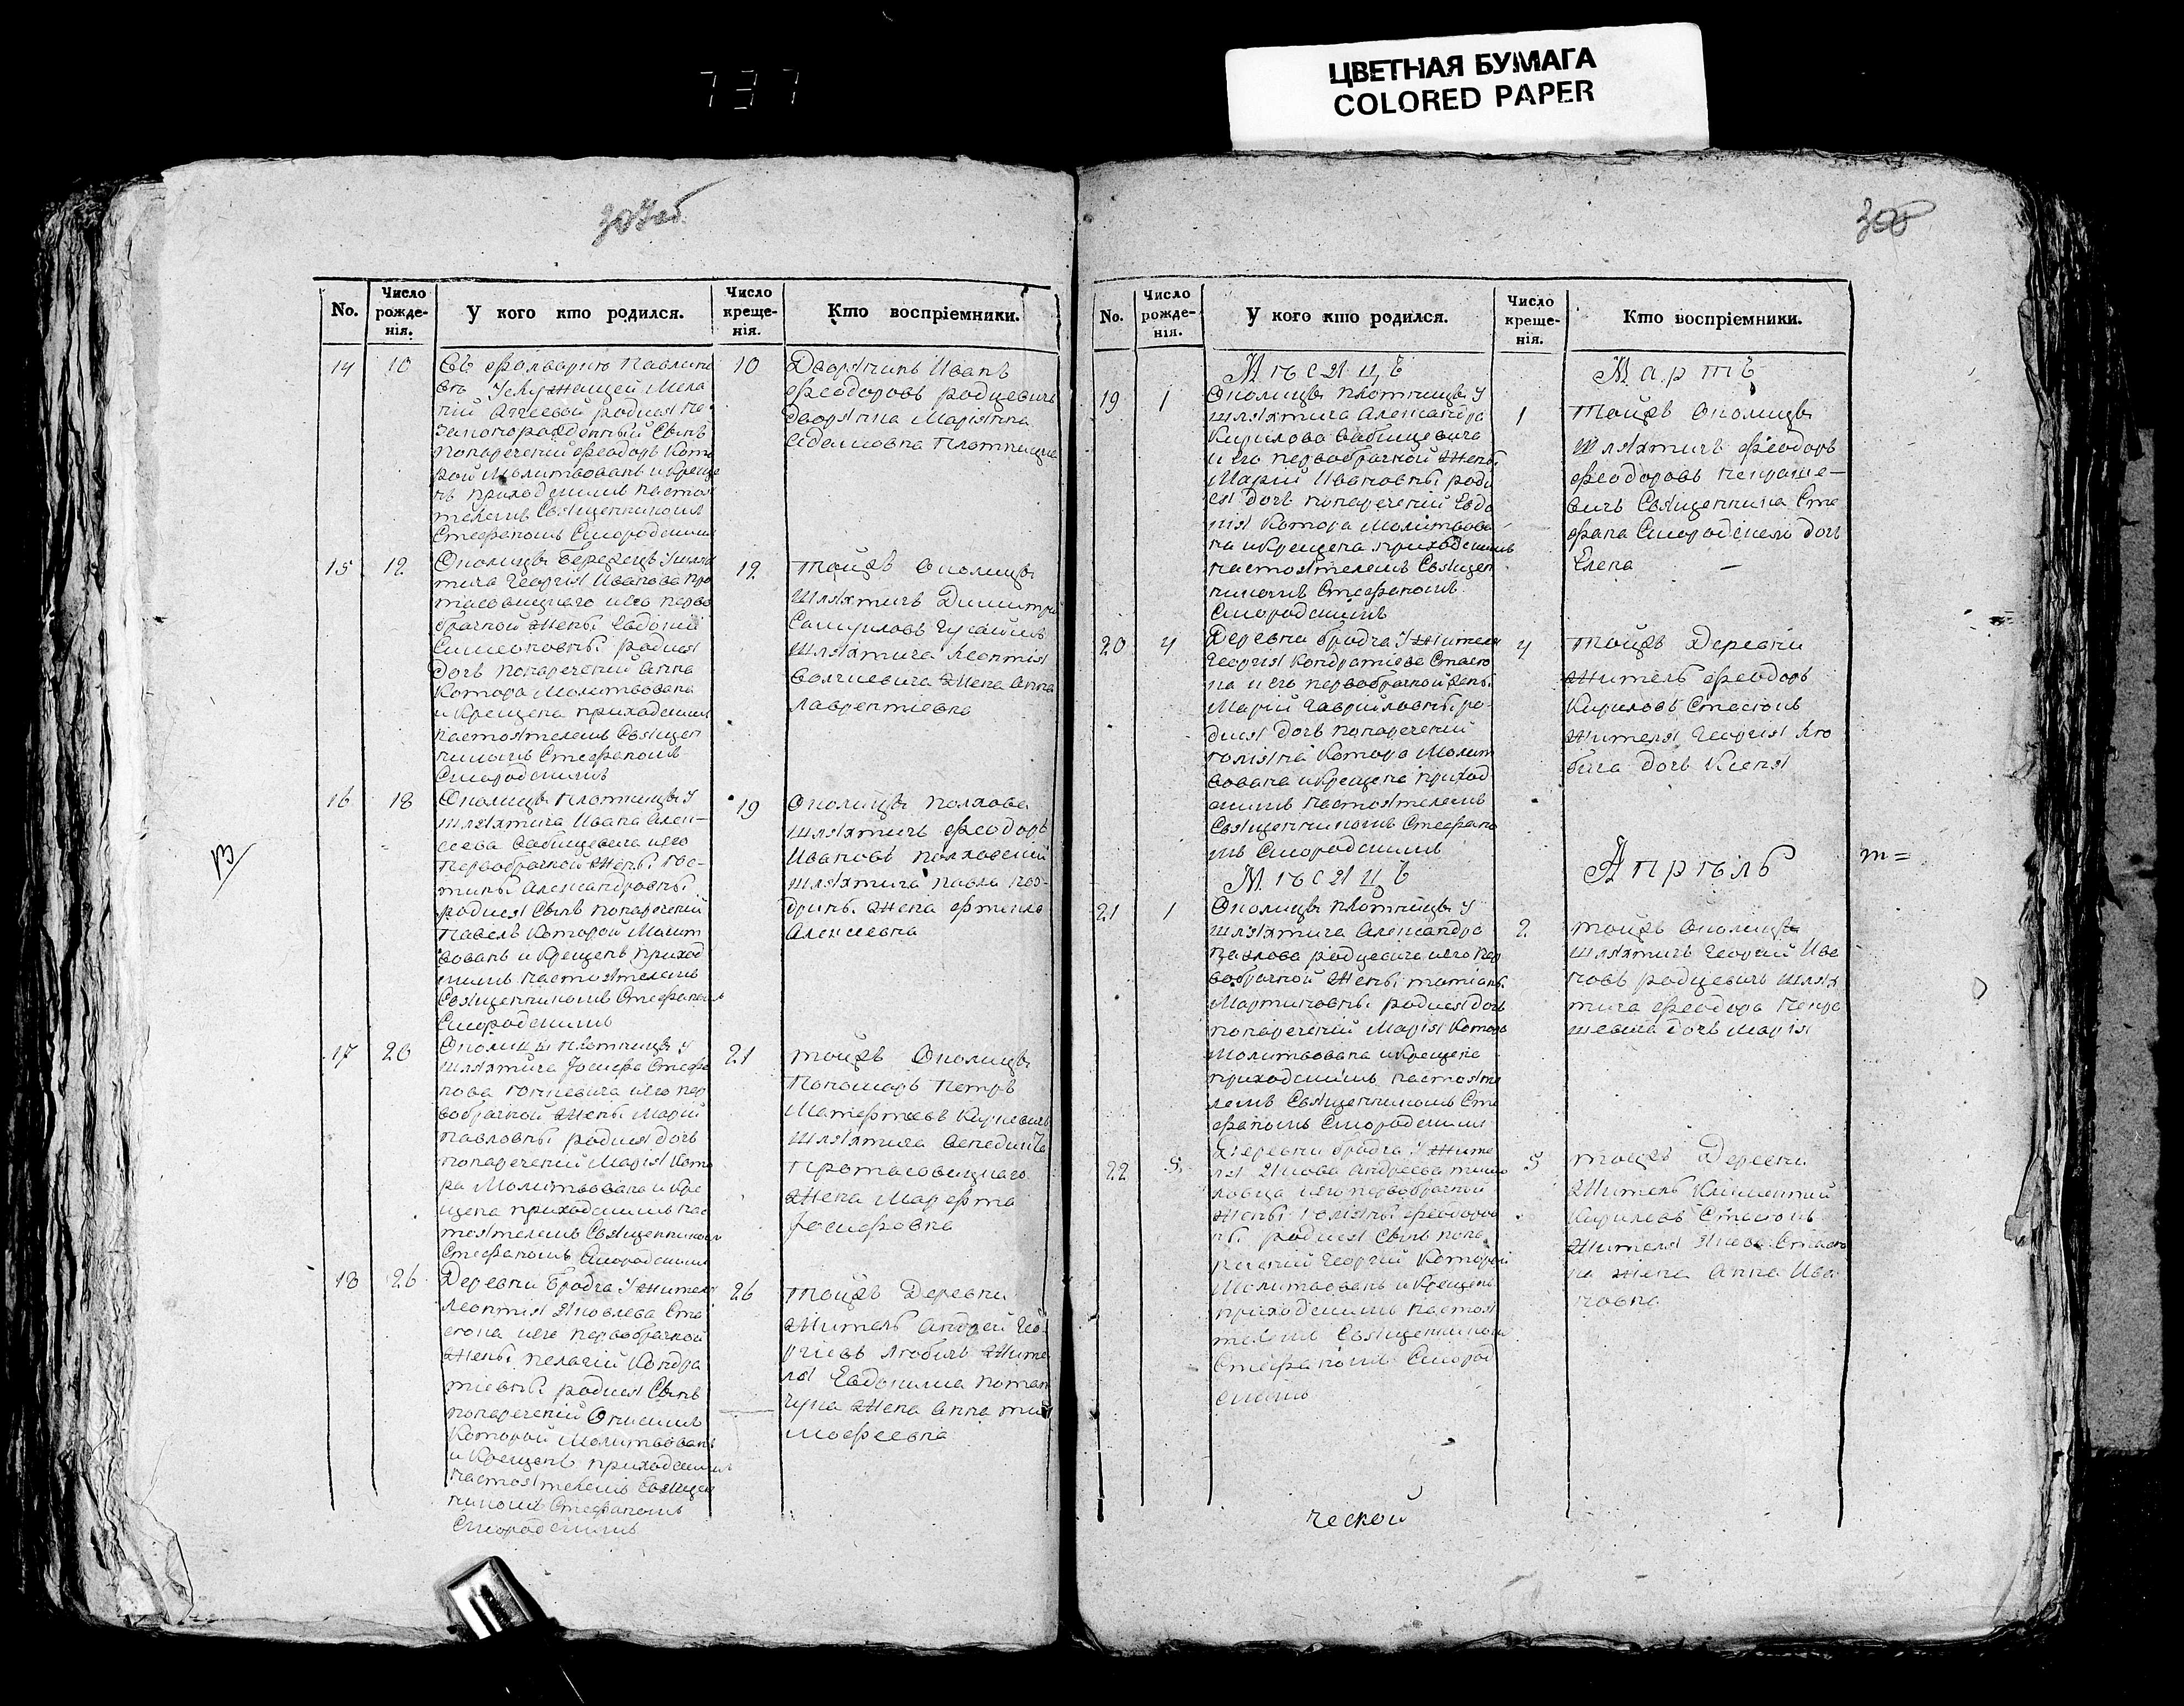 737
ЦВЕТНАЯ БУМАГА
COLORED PAPER
307об
308
No.
Число рожде-нія.
У кого кто родился.
Число креще-нія.
Кто воспріемники.
14
10
Съ фолварку Павлино
въ Услужащей Мела
ній родися не
законорожденный Сынъ
нонареченій Феодоръ Кото
рой Молитвованъ и Креще
нъ приходскимъ настоя
телемъ Священникомъ
Стефаномъ Смородскимъ
10
Дворянинъ Иванъ
Феодоровъ родцевичъ
дворянка Маріянна
Адамовна Плотницка
15
12
Околицы Бережцъ У шлях
тича Георгія Иванова Про
тасовицкаго и его перво
брачной Жены Евдокіи
Симеоновны родися
дочь нонареченій Анна
Котора Молитвована
и Крещена приходскимъ
настоятелемъ Священ
никомъ Стефаномъ
Смородскимъ
12
тойжъ Околицы
Шляхтичъ Димитрій
Самуиловъ
шляхтича Леонтія
Волчкевича Жена Анна
Лаврентіевна
16
18
Околицы Плотницы У
шляхтича Ивана Алек-
сеева Бабицевича и его
первобрачной Жены Юс-
тины Александровны
родися Сынъ нонареченій
Павелъ Которой Молит
вованъ и Крещенъ приход
скимъ настоятелемъ
Священникомъ Стефаномъ
Смородскимъ
19
Околицы Полхова
шляхтичъ Феодоръ
Ивановъ Полховскій
шляхтича Павла
Жена Фекла
Алексеевна
17
20
Околицы Плотницы У
шляхтича Іосифа Стефа
нова и его пер
вобрачной Жены Маріи
Павловны родися дочь
нонареченій Марія Кото
ра Молитвована и Кре
щена приходскимъ нас
тоятелемъ Священникомъ
Стефаномъ Смородскимъ
21
тойжъ Околицы
Пономарь Петръ
Матфеевъ
шляхтича Венедикта
Протасовицкаго
Жена Марфта
Іосифовна
18
26
Деревни Бродча У Жителя
Леонтія Яковлева Ста
сюка и его первобрачной
Жены Пелагіи Кондра
тіевны родися Сынъ
нонареченій Онисимъ
Которой Молитвованъ
и Крещенъ приходскимъ
настоятелемъ Священ
никомъ Стефаномъ
Смородскимъ
26
тойжъ Деревни
Житель Андрей Гео
ргіевъ Жите
ля Евдокима Потап
чука Жена Анна Тим
мофеевна
No.
Число рожде-нія.
У кого кто родился.
Число креще-нія.
Кто воспріемники.
Мѣсяцъ
Мартъ
19
1
Околицы Плотницы У
шляхтича Александра
Кирилова Бабицевича
и его первобрачной Жены
Маріи Ивановны роди
ся дочь нонареченій Евдо
кія Котора Молитвова
на и Крещена приходскимъ
настоятелемъ Священ
никомъ Стефаномъ
Смородскимъ
1
тойжъ Околицы
Шляхтичъ Феодоръ
Феодоровъ Непраше-
вичъ Священника Сте
фана Смородскаго дочь
Елена
20
4
Деревни Бродча У Жителя
Георгія Кондратіева Стасю
ка и его первобрачной Жены
Маріи Гавриловны ро-
дися дочь нонареченій
Юліяна Котора Молит
вована и Крещена приход
скимъ настоятелемъ
Священникомъ Стефано
мъ Смородскимъ
4
тойжъ Деревни
Житель Феодоръ
Кириловъ Стасюкъ
Жителя Георгія Лю
бича дочь Ксенія
Мѣсяцъ
Апрѣль
21
1
Околицы Плотницы У
шляхтича Александра
Павлова родцевича и его пер
вобрачной Жены Татіаны
Мартиновны родися дочь
нонареченій Марія Котора
Молитвована и Крещена
приходскимъ настояте
лемъ Священникомъ Сте
фаномъ Смородскимъ
2
тойжъ Околицы
Шляхтичъ Георгій Ива
новъ родцевичъ шлях
тича Феодора Непра
шевича дочь Марія
22
5
Деревни Бродча У Жите
ля Якова Андреева
и его первобрачной
Жены Юліяны Феодоров
ны родися Сынъ нона
реченій Георгій Которой
Молитвованъ и Крещенъ
приходскимъ настоя
телемъ Священникомъ
Стефаномъ Смород
скимъ
5
тойжъ Деревни
Житель Климентій
Кириловъ Стасюкъ
Жителя Якова Стасю
ка Жена Анна Ива
новна
т=
ческой